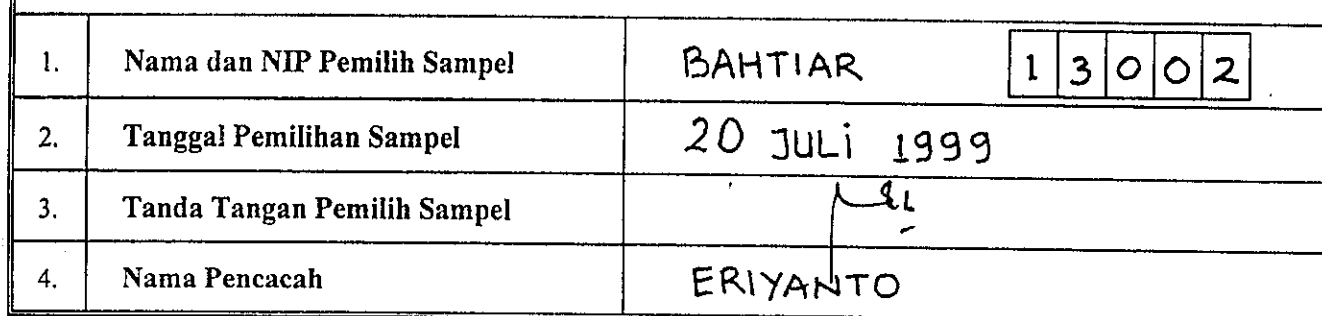 1. Nama dan NIP Pemilih Sampel BAHTIAR 13002
2. Tanggal Pemilihan Sampel 20 JULi 1999
3. Tanda Tangan Pemilih Sampel
4. Nama Pencacah ERIYANTO